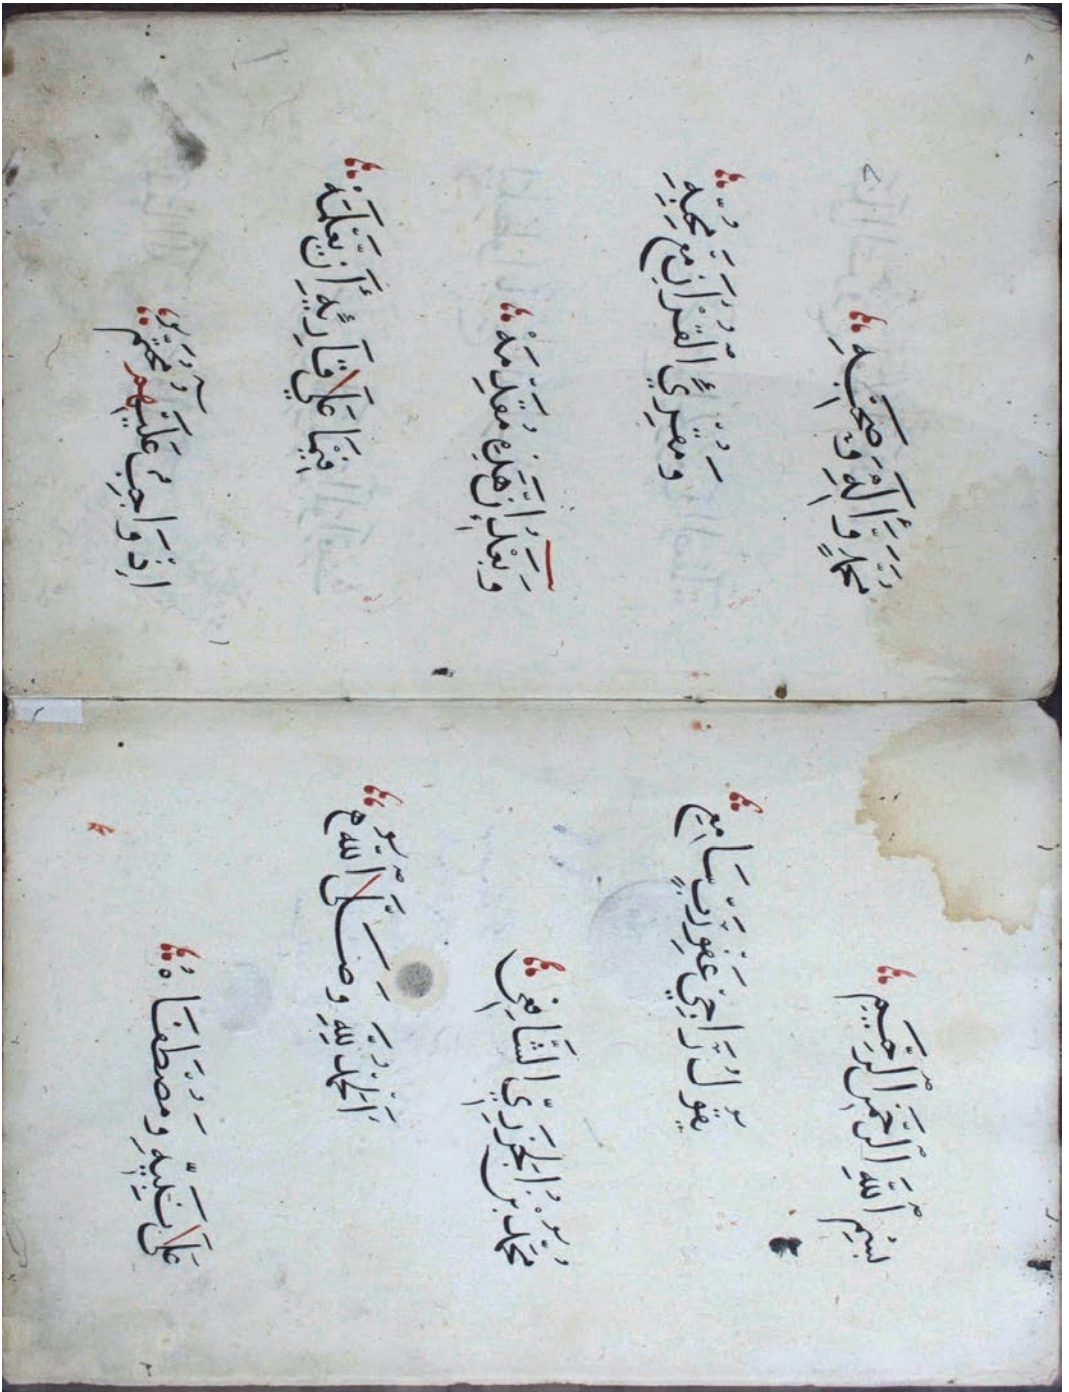 بِسْمِ اللَّهِ الرَّحْمَنِ الرَّحِيمِ
يَقُولُ رَاجِي عَفْوِ رَبٍّ سَامِعِ
مُحَمَّدُ بْنُ الْجَزَرِيِّ الشَّافِعِي
اَلْحَمْدُ لِلَّهِ وَصَلَّى اللَّهُ
عَلَى نَبِيِّهِ وَمُصْطَفَاهُ
مُحَمَّدٍ وَّآلِهِ وَصَحْبِهِ
وَمُقْرِئِ الْقُرْآنِ مَعْ مُحِبِّهِ
وَبَعْدُ إِنَّ هَذِهِ مُقَدِّمَهْ
فِيمَا عَلَى قَارِئِهِ أَنْ يَّعْلَمَهْ
اِذْ وَاجِبٌ عَلَيْهِمُ مُحَتَّمُ